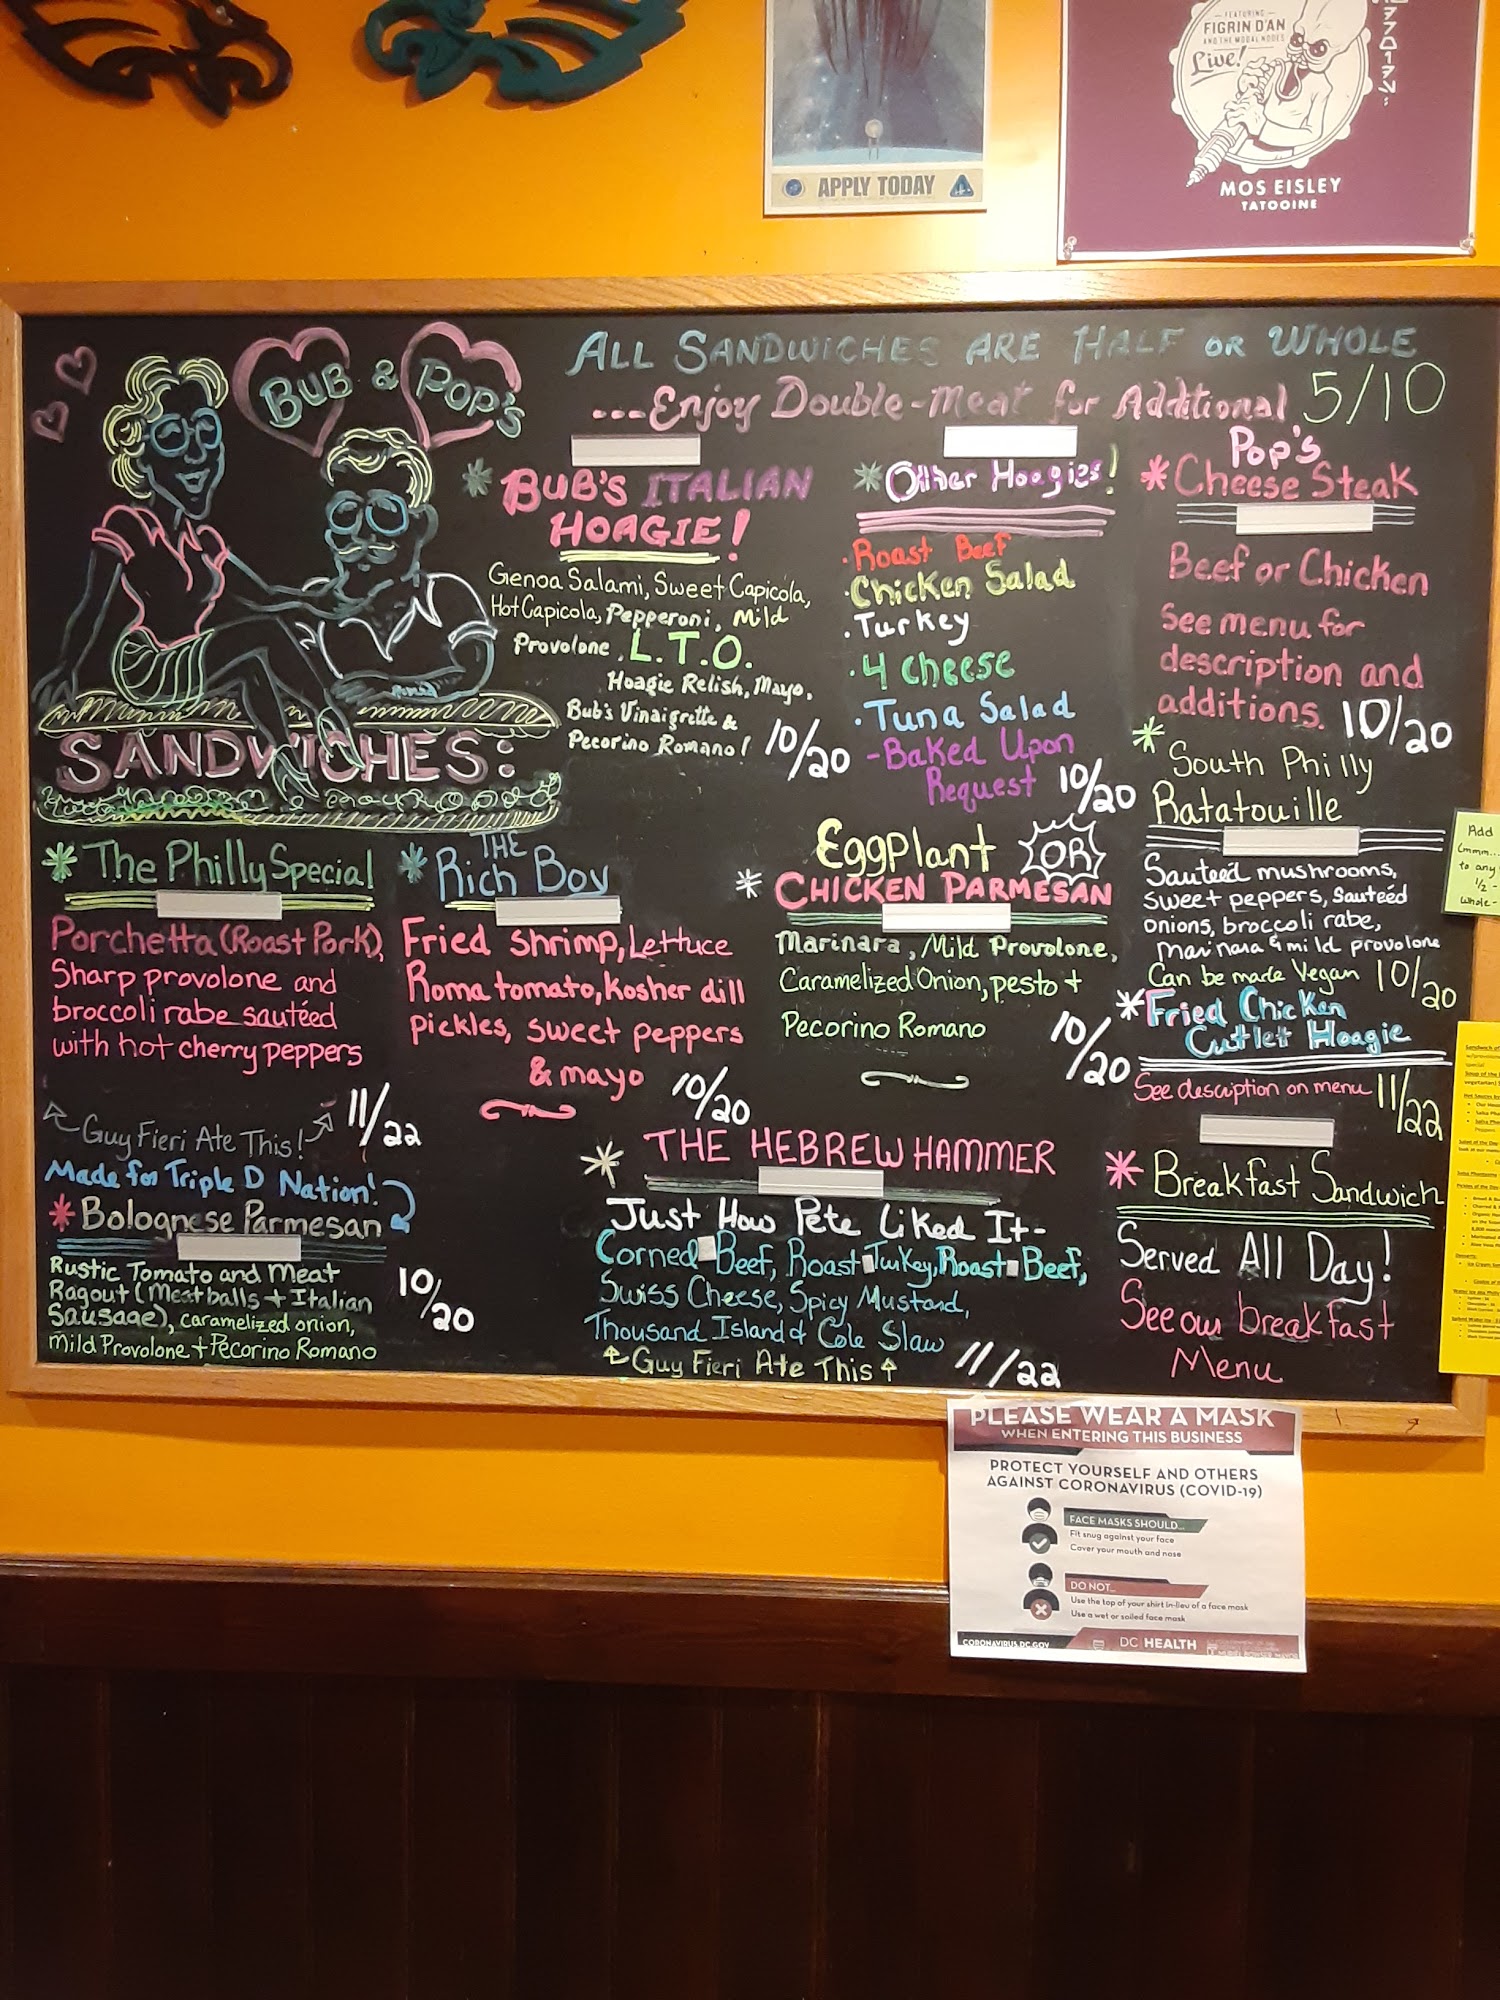 FEATURING
FIGRIN D'AN
AND THE MODAL NODES
Live!
MOS EISLEY
TATOOINE
APPLY TODAY
BUB & POP'S
SANDWICHES:
ALL SANDWICHES ARE HALF OR WHOLE
...Enjoy Double-meat for Additional 5/10
* BUB'S ITALIAN
HOAGIE!
Genoa Salami, Sweet Capicola,
Hot Capicola, Pepperoni, Mild
Provolone, L.T.O.
Hoagie Relish, Mayo,
Bub's Vinaigrette &
Pecorino Romano! 10/20
* Other Hoagies!
· Roast Beef
· Chicken Salad
· Turkey
· 4 cheese
· Tuna Salad
- Baked Upon
Request 10/20
Pop's
* Cheese Steak
Beef or Chicken
See menu for
description and
additions. 10/20
* South Philly
Ratatouille
Sauteéd mushrooms,
sweet peppers, sauteéd
onions, broccoli rabe,
marinara & mild provolone
Can be made Vegan 10/20
* Fried Chicken
Cutlet Hoagie
See description on menu 11/22
* Breakfast Sandwich
Served All Day!
See our breakfast
Menu
* The Philly Special
Porchetta (Roast Pork),
Sharp provolone and
broccoli rabe sautéed
with hot cherry peppers
11/22
Guy Fieri Ate This!
Made for Triple D Nation!
* Bolognese Parmesan
Rustic Tomato and Meat
Ragout (Meatballs + Italian
Sausage), caramelized onion,
Mild Provolone + Pecorino Romano
10/20
* THE
Rich Boy
Fried shrimp, Lettuce
Roma tomato, kosher dill
pickles, sweet peppers
& mayo 10/20
Eggplant OR
* CHICKEN PARMESAN
Marinara, Mild Provolone,
Caramelized Onion, pesto +
Pecorino Romano 10/20
* THE HEBREW HAMMER
Just How Pete Liked It-
Corned Beef, Roast Turkey, Roast Beef,
Swiss Cheese, Spicy Mustard,
Thousand Island & Cole Slaw
Guy Fieri Ate This 11/22
Add
to any
1/2 -
Whole -
PLEASE WEAR A MASK
WHEN ENTERING THIS BUSINESS
PROTECT YOURSELF AND OTHERS
AGAINST CORONAVIRUS (COVID-19)
FACE MASKS SHOULD...
Fit snug against your face
Cover your mouth and nose
DO NOT...
Use the top of your shirt in-lieu of a face mask
Use a wet or soiled face mask
CORONAVIRUS.DC.GOV
DC HEALTH